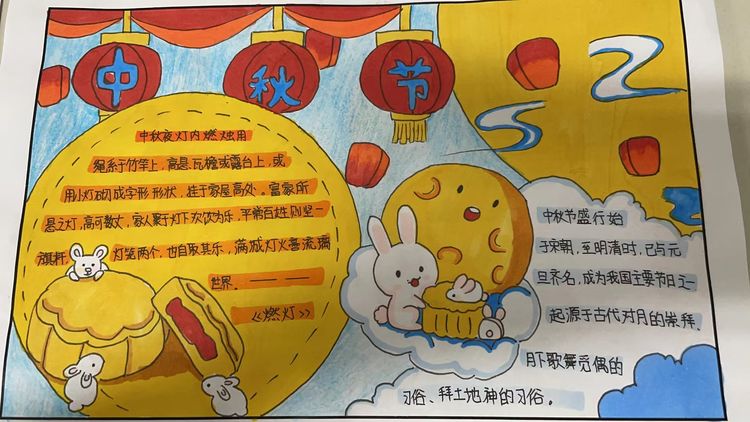 中秋节
中秋夜灯内燃烛用
绳系于竹竿上，高悬瓦檐或露台上，或
用小灯砌成字形形状，挂于家屋高处。富家所
悬之灯，高可数丈，家人聚于灯下欢饮为乐，平常百姓则竖一
旗杆，灯笼两个，也自取其乐，满城灯火善流璃
世界．————
《燃灯》
中秋节盛行始
于宋朝，至明清时，已与元
旦齐名，成为我国主要节日之一
起源于古代对月的崇拜、
月下歌舞觅偶的
习俗、拜土地神的习俗。